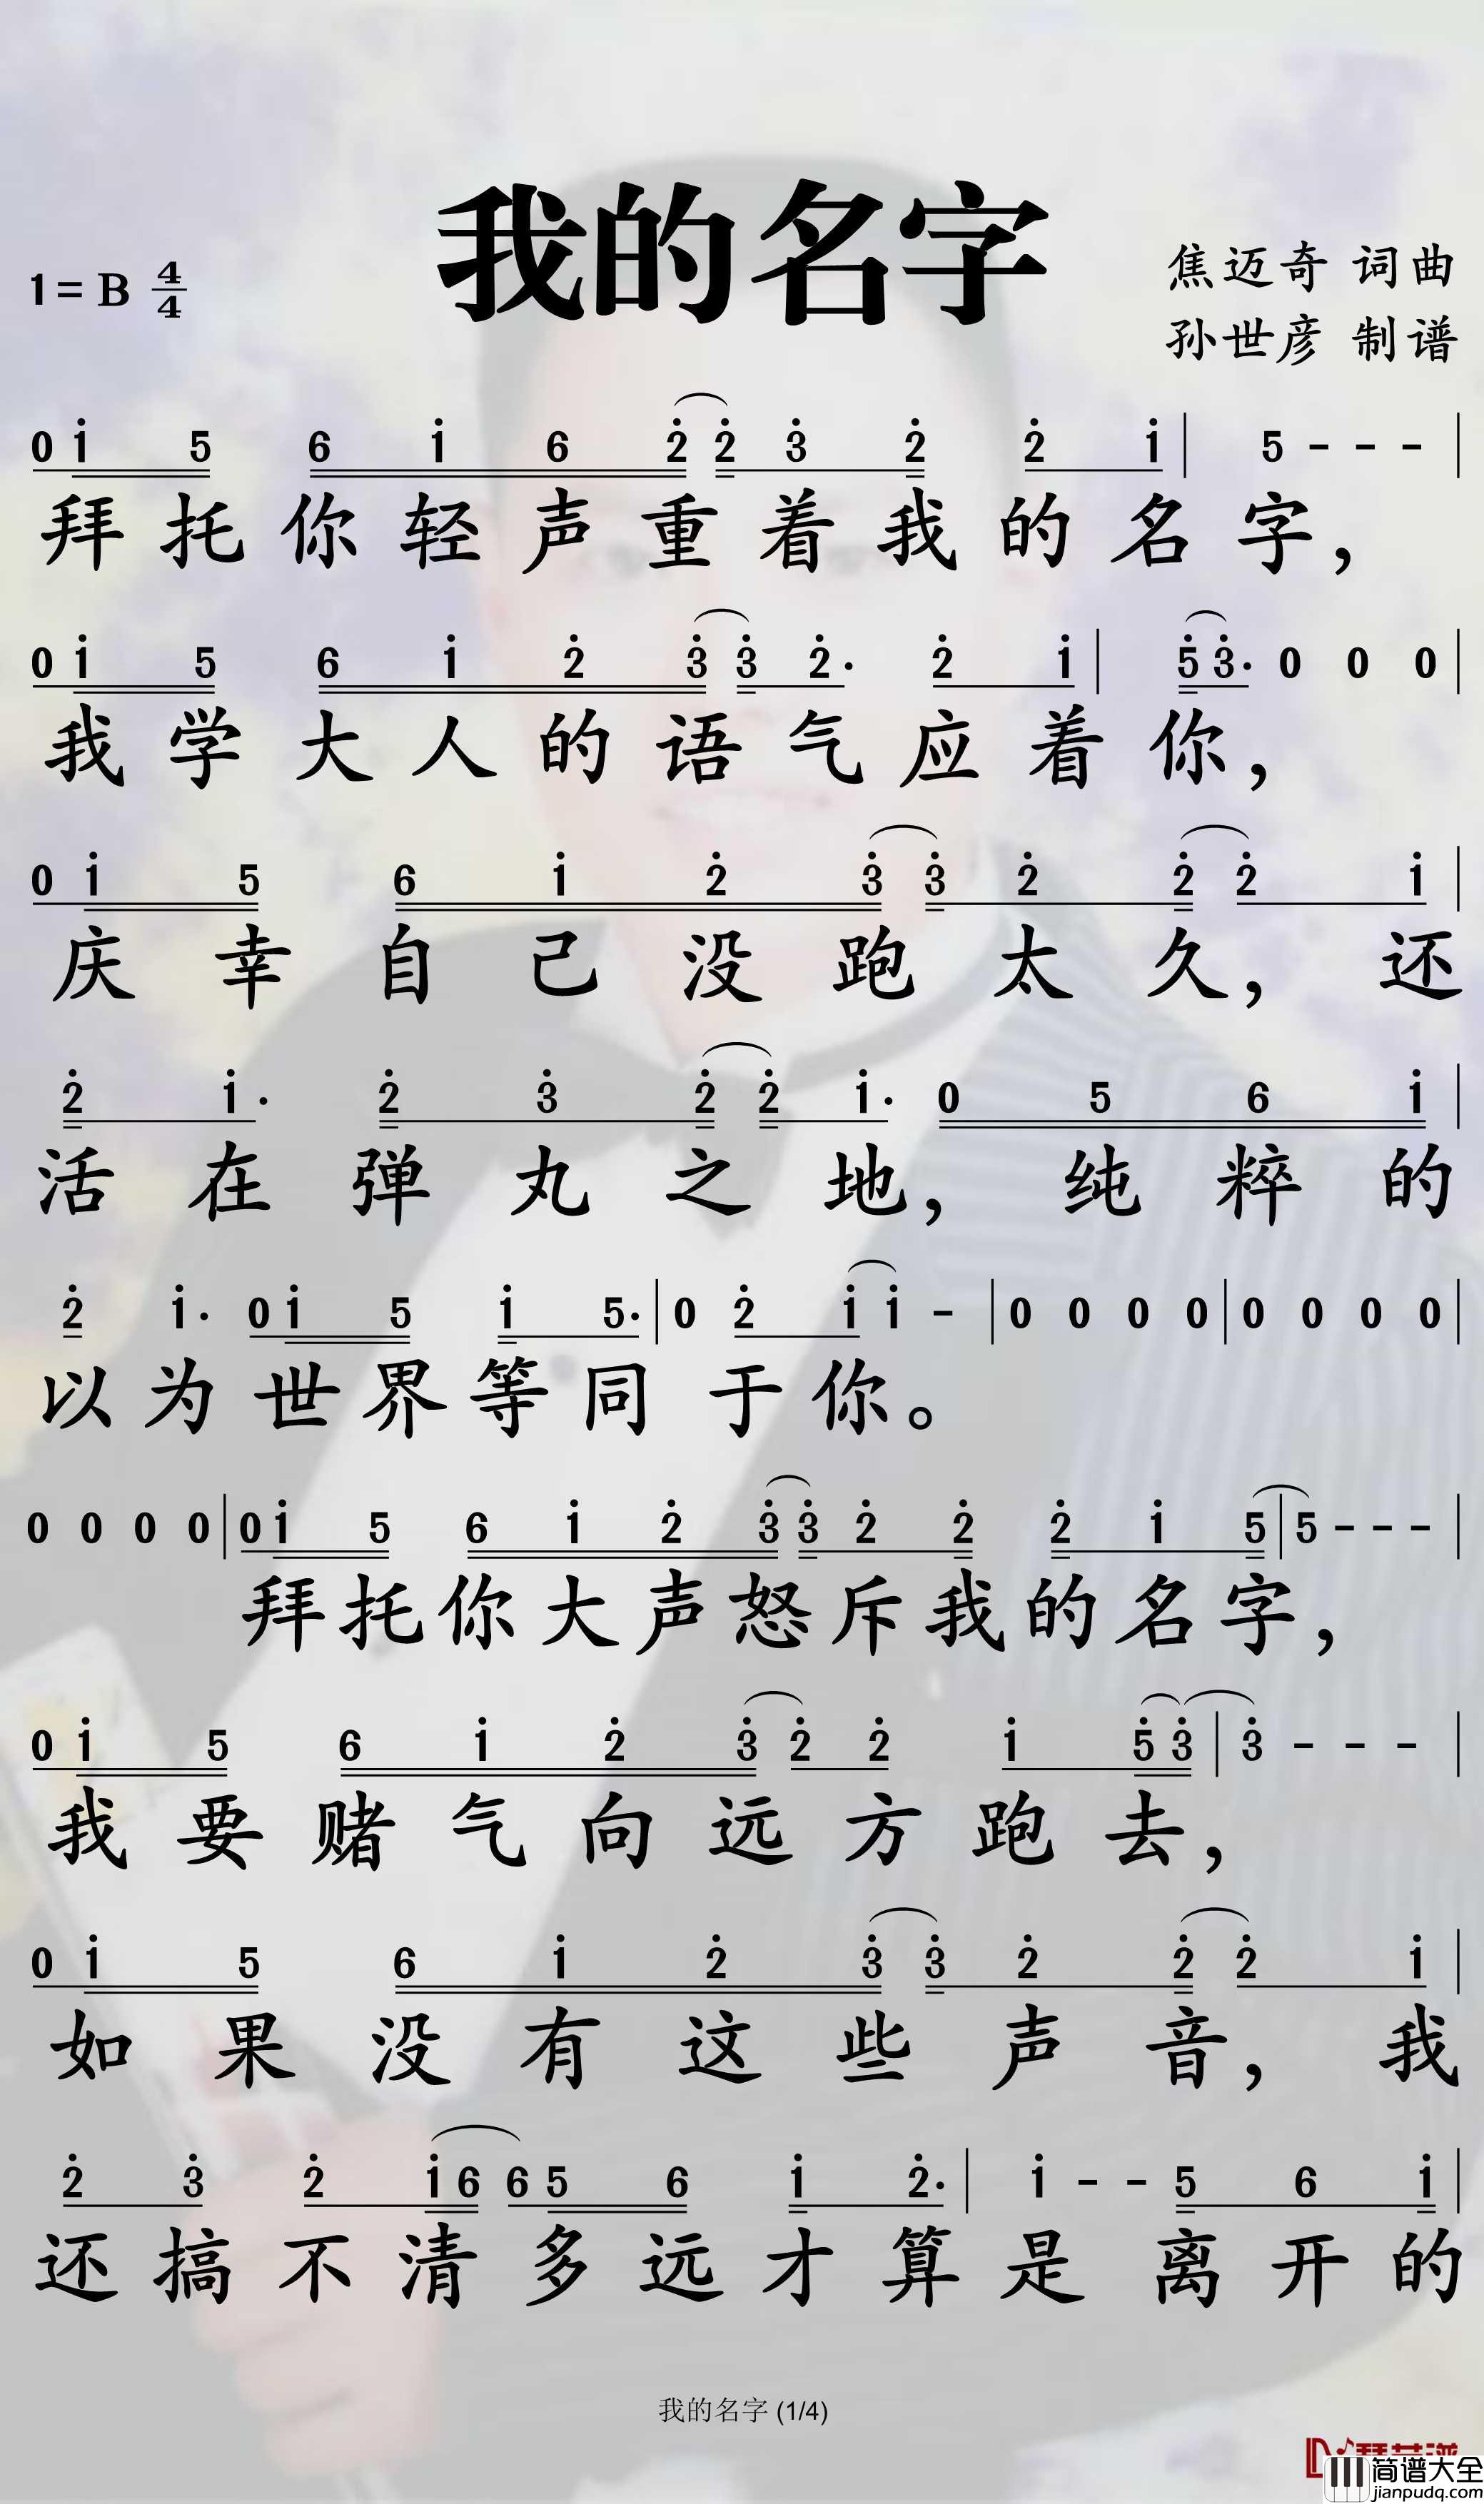 我的名字
1=B 4/4
焦迈奇 词曲
孙世彦 制谱
0 1̇ 5 6 1̇ 6 2̇ 2̇ 3̇ 2̇ 2̇ 1̇ | 5 - - - |
拜托你轻声重着我的名字，
0 1̇ 5 6 1̇ 2̇ 3̇ 3̇ 2̇· 2̇ 1̇ | 5̇ 3̇· 0 0 0 |
我学大人的语气应着你，
0 1̇ 5 6 1̇ 2̇ 3̇ 3̇ 2̇ 2̇ 2̇ 1̇ |
庆幸自己没跑太久，还
2̇ 1̇· 2̇ 3̇ 2̇ 2̇ 1̇· 0 5 6 1̇ |
活在弹丸之地，纯粹的
2̇ 1̇· 0 1̇ 5 1̇ 5· | 0 2̇ 1̇ 1̇ - | 0 0 0 0 | 0 0 0 0 |
以为世界等同于你。
0 0 0 0 | 0 1̇ 5 6 1̇ 2̇ 3̇ 3̇ 2̇ 2̇ 2̇ 1̇ 5 | 5 - - - |
拜托你大声怒斥我的名字，
0 1̇ 5 6 1̇ 2̇ 3̇ 2̇ 2̇ 1̇ 5̇ 3̇ | 3̇ - - - |
我要赌气向远方跑去，
0 1̇ 5 6 1̇ 2̇ 3̇ 3̇ 2̇ 2̇ 2̇ 1̇ |
如果没有这些声音，我
2̇ 3̇ 2̇ 1̇ 6 6 5 6 1̇ 2̇· | 1̇ - - 5 6 1̇ |
还搞不清多远才算是离开的
我的名字 (1/4)
简谱大全
jianpudq.com